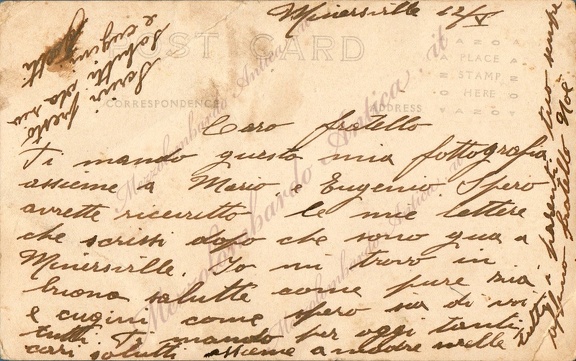 Minersville 12/V
POST CARD
CORRESPONDENCE
ADDRESS
PLACE
STAMP
HERE
Caro fratello
Ti mando questa mia fottografia
assieme a Mario, e Eugenio. Spero
avrette ricevutto le mie lettere
che scrissi dopo che sono qua a
Minersville. Io mi trovo in
buona salutte come pure zia
e cugini come spero sia di voi
tutti. Ti mando per oggi tanti
cari salutti assieme a
tutti i parenti tuo sempre
fratello Noè
Scrivi presto
salutti da zio
e cugini
Mezzolombardo Antica .it